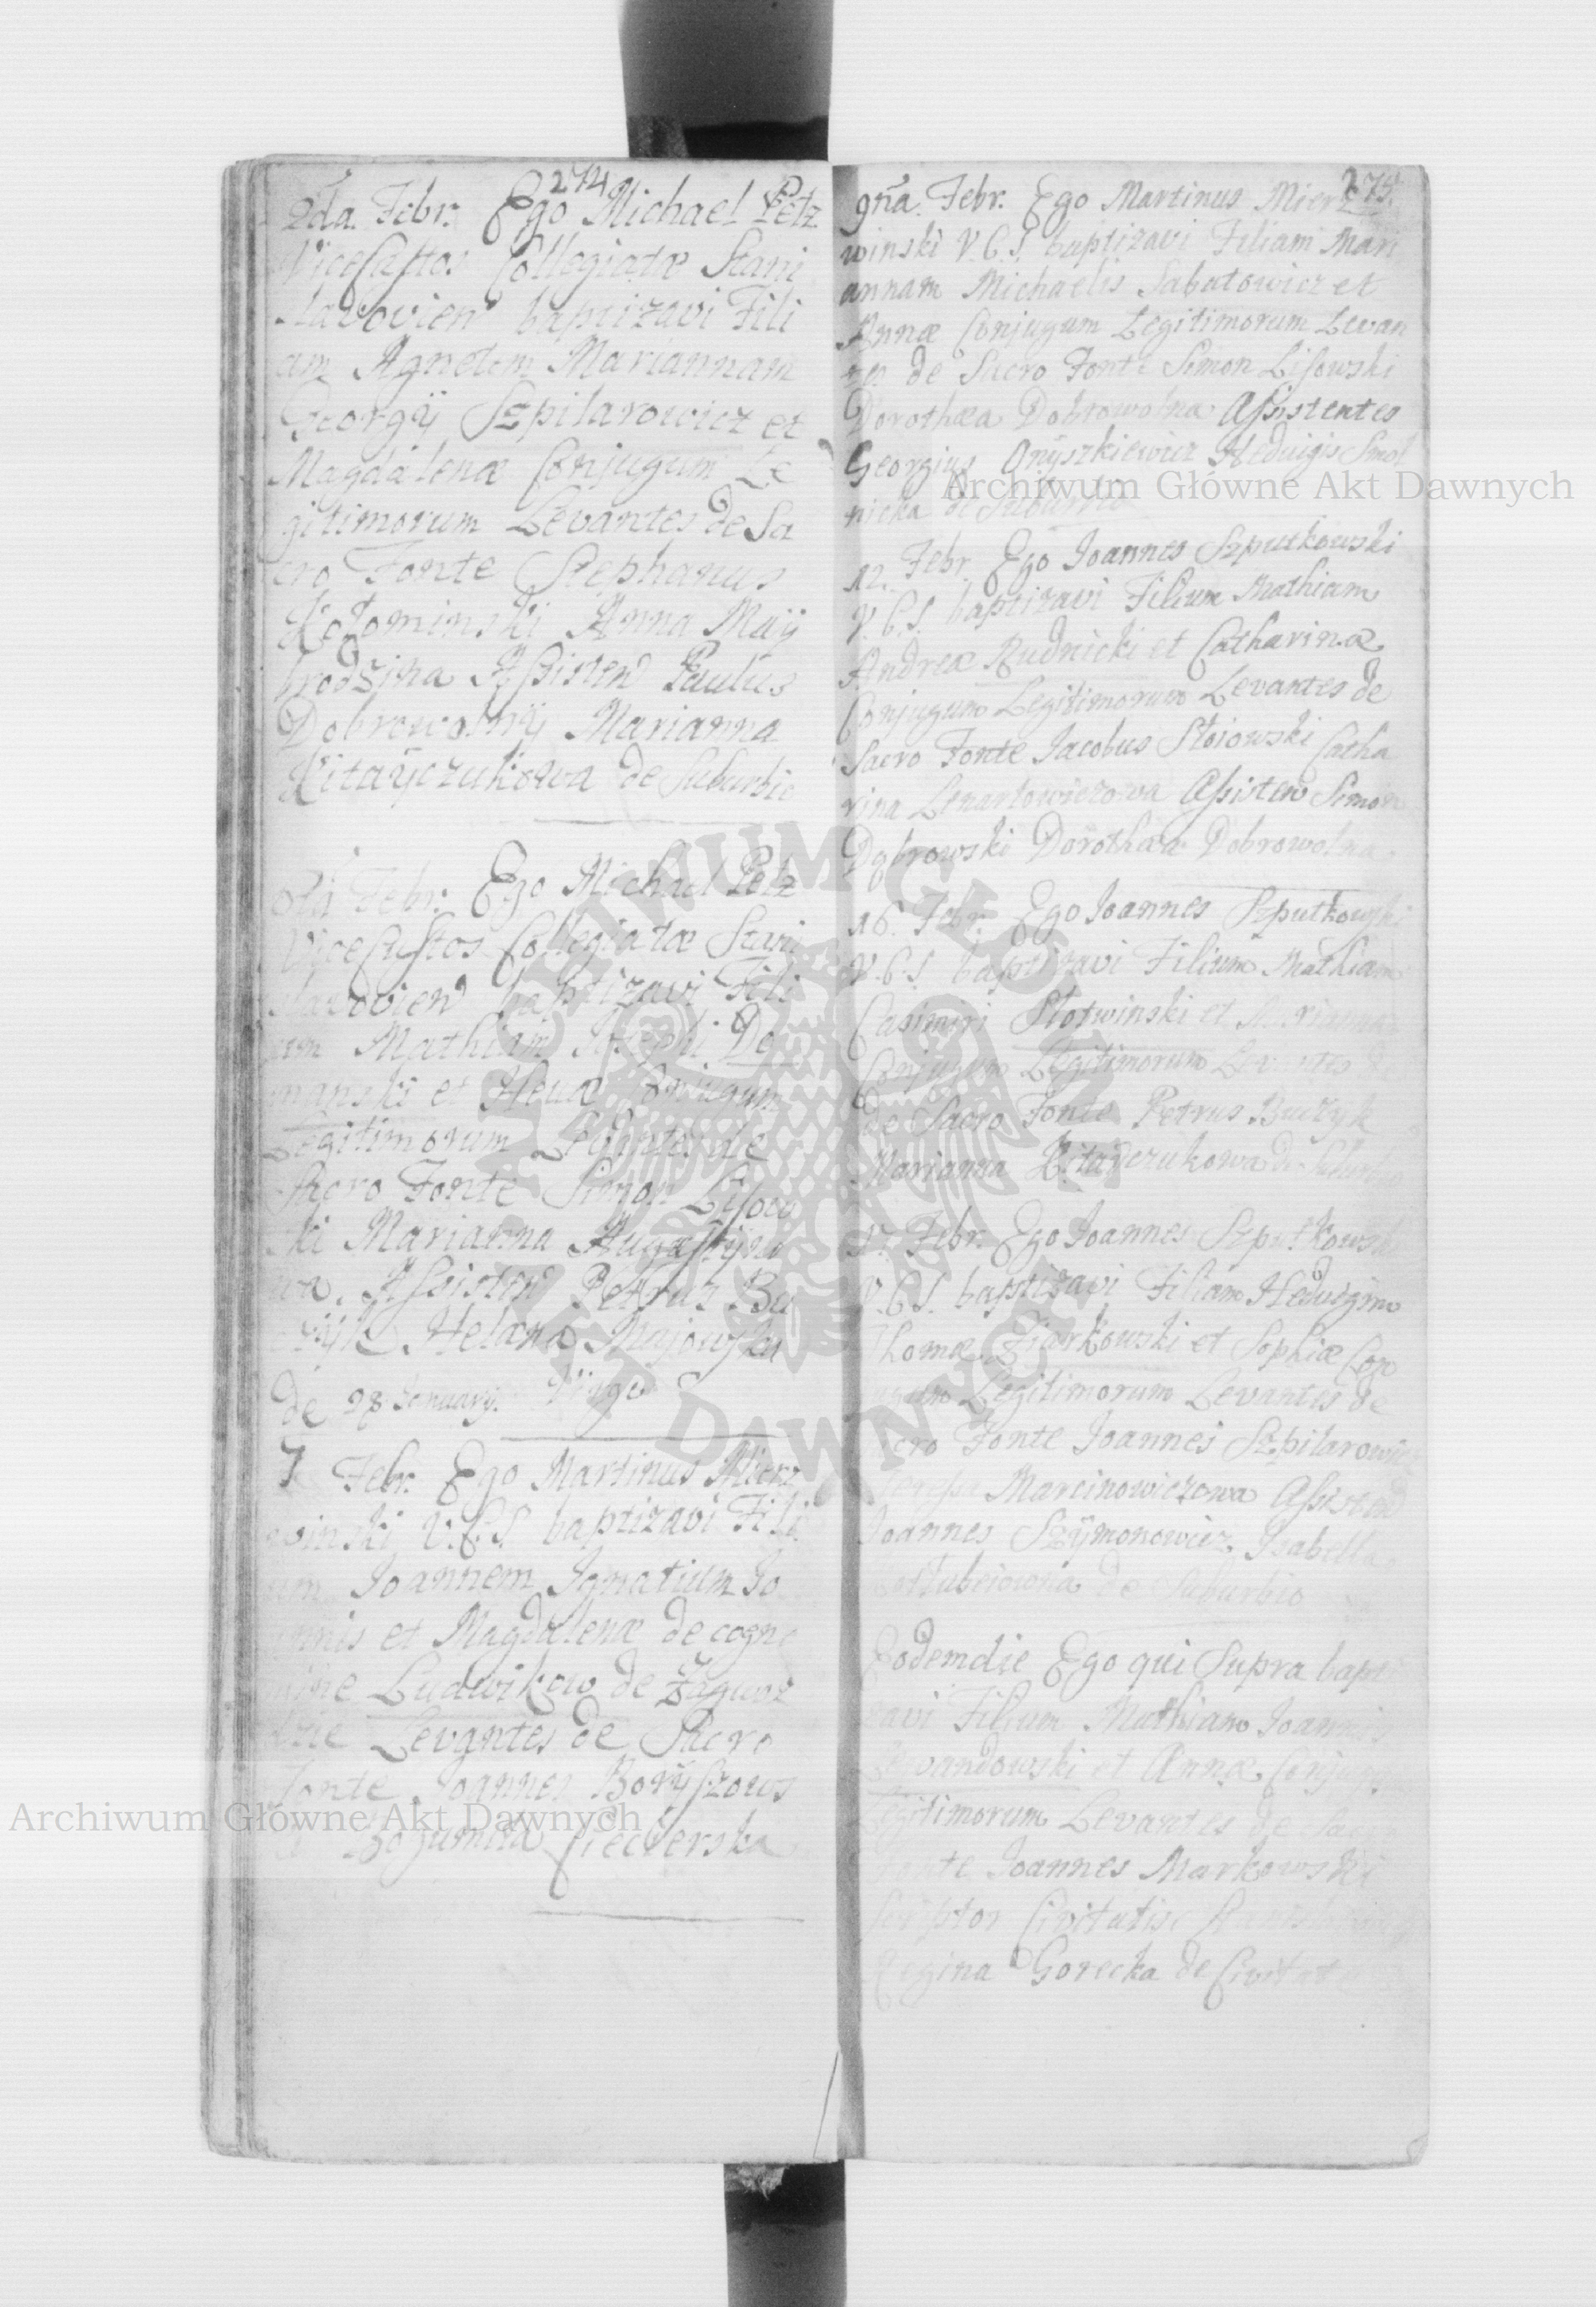 274
2da. Febr. Ego Michael Petz
ViceCustos Collegiatæ Stani
slavovien baptizavi Fili
am Agnetem Mariannam
Georgÿ Szpilarowicz et
Magdalenæ Conjugum Le
gitimorum Levantes de Sa
cro Fonte Stephanus
Kołominski Anna Maÿ
brodzina Assisten Paulus
Dobrowolnÿ Marianna
Kitaÿczukowa de Suburbio
Febr. Ego Michael Petz
ViceCustos Collegiatæ Stani
slavovien baptizavi Fili
um Mathiam Josephi Do
manski et Hevæ Conjugum
Legitimorum Levantes de
Sacro Fonte Simon Lisow
ski Marianna
Assisten Petrus Bu
Helena
de 28 January.
7 Febr. Ego Martinus Mierz
winski V.C.S. baptizavi Fili
um Joannem Ignatium Jo
annis et Magdalenæ de cogno
mine Ludwikow de
Levantes de Sacro
Fonte Joannes Borÿszows
ki Bogumiła
275.
9na. Febr. Ego Martinus Mierz
winski V.C.S. baptizavi Filiam Mari
annam Michaelis Sabatowicz et
Annæ Conjugum Legitimorum Levan
tes de Sacro Fonte Simon Lisowski
Dorothæa Dobrowolna Assistentes
Georgius Onÿszkiewicz Hedvigis Smol
nicka de Suburbio
12. Febr. Ego Joannes Szputkowski
V.C.S. baptizavi Filium Mathiam
Andreæ Rudnicki et Catharinæ
Conjugum Legitimorum Levantes de
Sacro Fonte Jacobus Stoiowski Catha
rina Lenartowiczowa Assisten Simon
Dąbrowski Dorothæa Dobrowolna
16. Febr. Ego Joannes Szputkowski
V.C.S. baptizavi Filium Mathiam
Casimiri Słotwinski et Mariannæ
Conjugum Legitimorum Levantes
de Sacro Fonte Petrus Buczyk
Marianna Kitaÿczukowa de Suburbio
Febr. Ego Joannes Szputkowski
V.C.S. baptizavi Filiam Hedvigim
Thomæ Ziarkowski et Sophiæ Con
jugum Legitimorum Levantes de
Sacro Fonte Joannes Szpilarowicz
Teressa Marcinowiczowa Assisten
Joannes Szÿmonowicz Isabella
de Suburbio
Eodem die Ego qui Supra bapti
zavi Filium Mathiam Joannis
Lewandowski et Annæ Conjug.
Legitimorum Levantes de Sacro
Fonte Joannes Markowski
Scriptor Civitatis
Regina Gorecka de Civitate
Archiwum Główne Akt Dawnych
Archiwum Główne Akt Dawnych
ARCHIWUM GŁÓWNE
AKT DAWNYCH